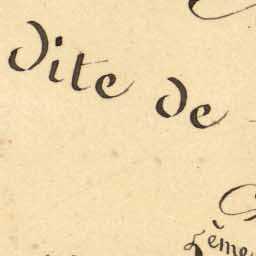 dite de
5ème